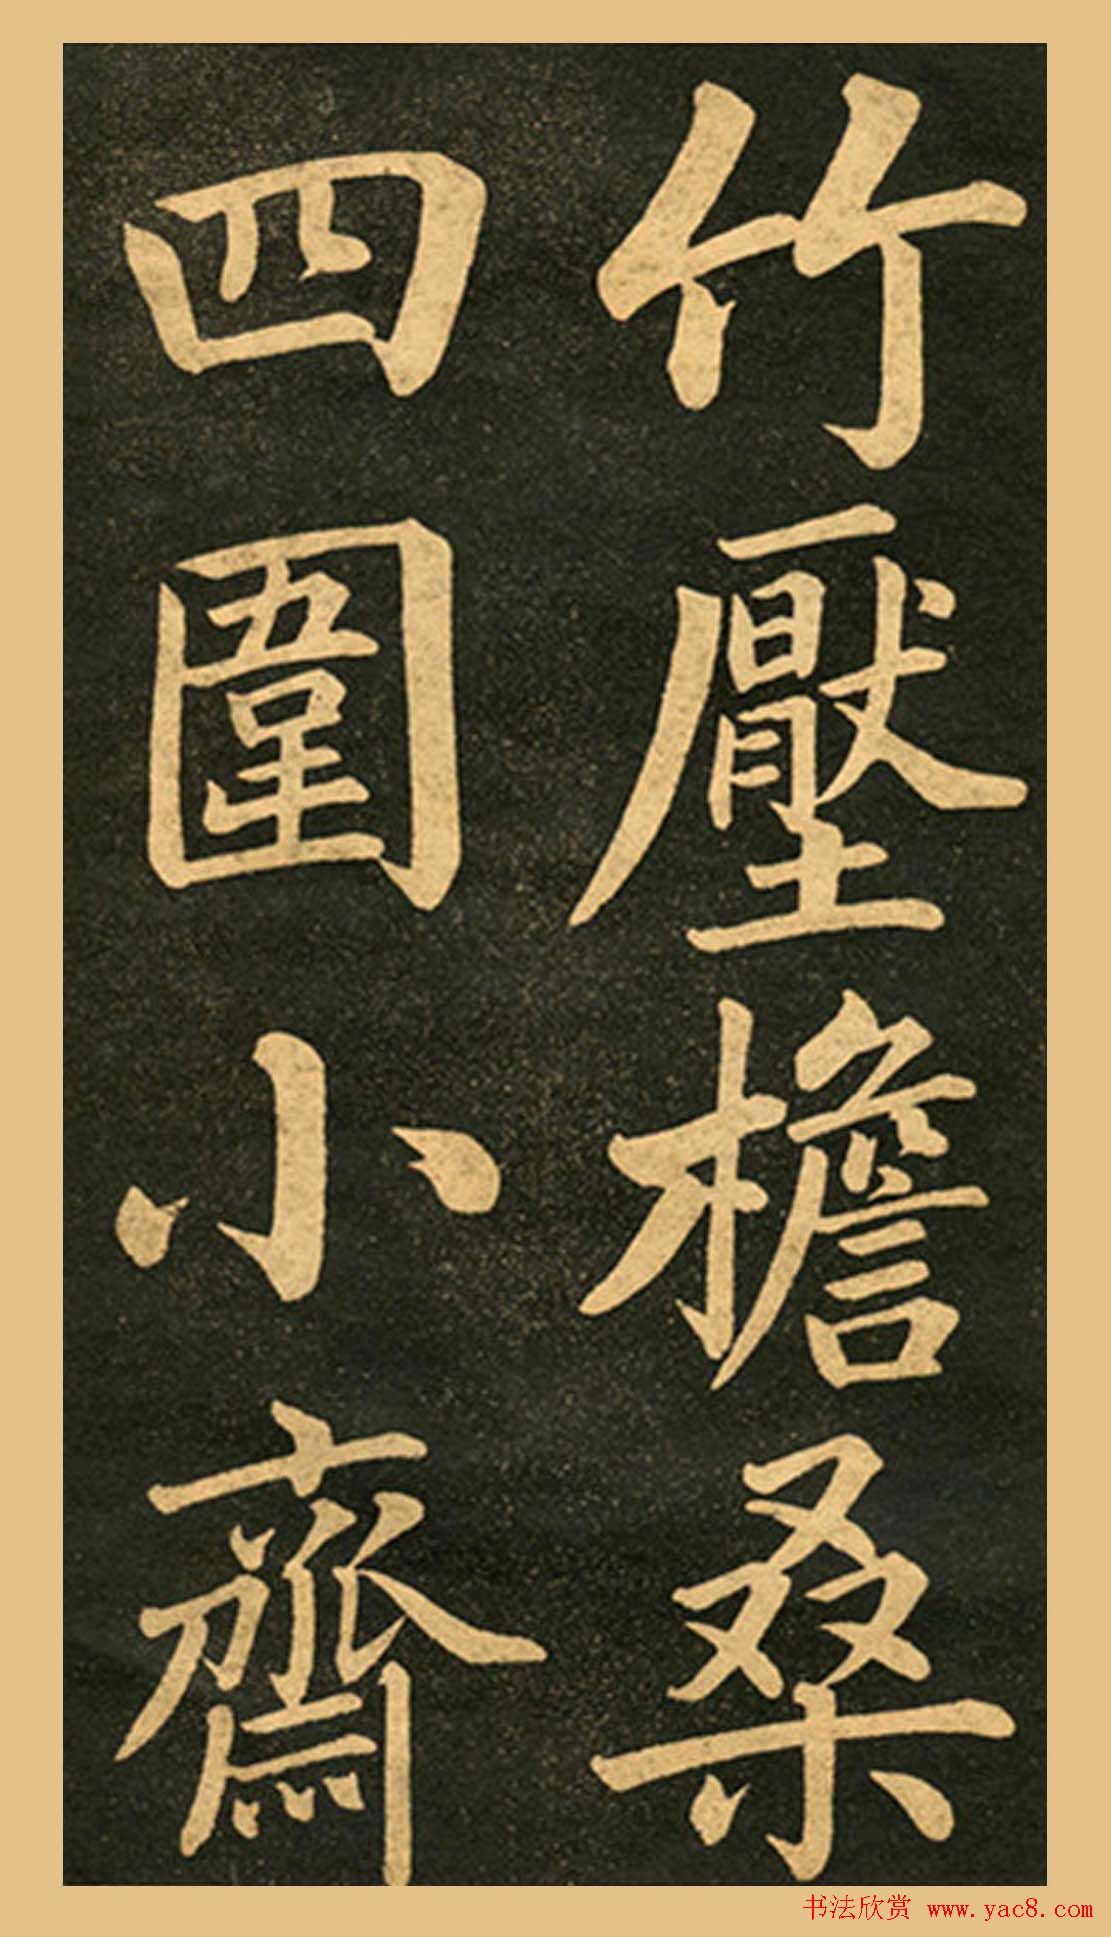 竹壓檐桑
四圍小齋
书法欣赏 www.yac8.com